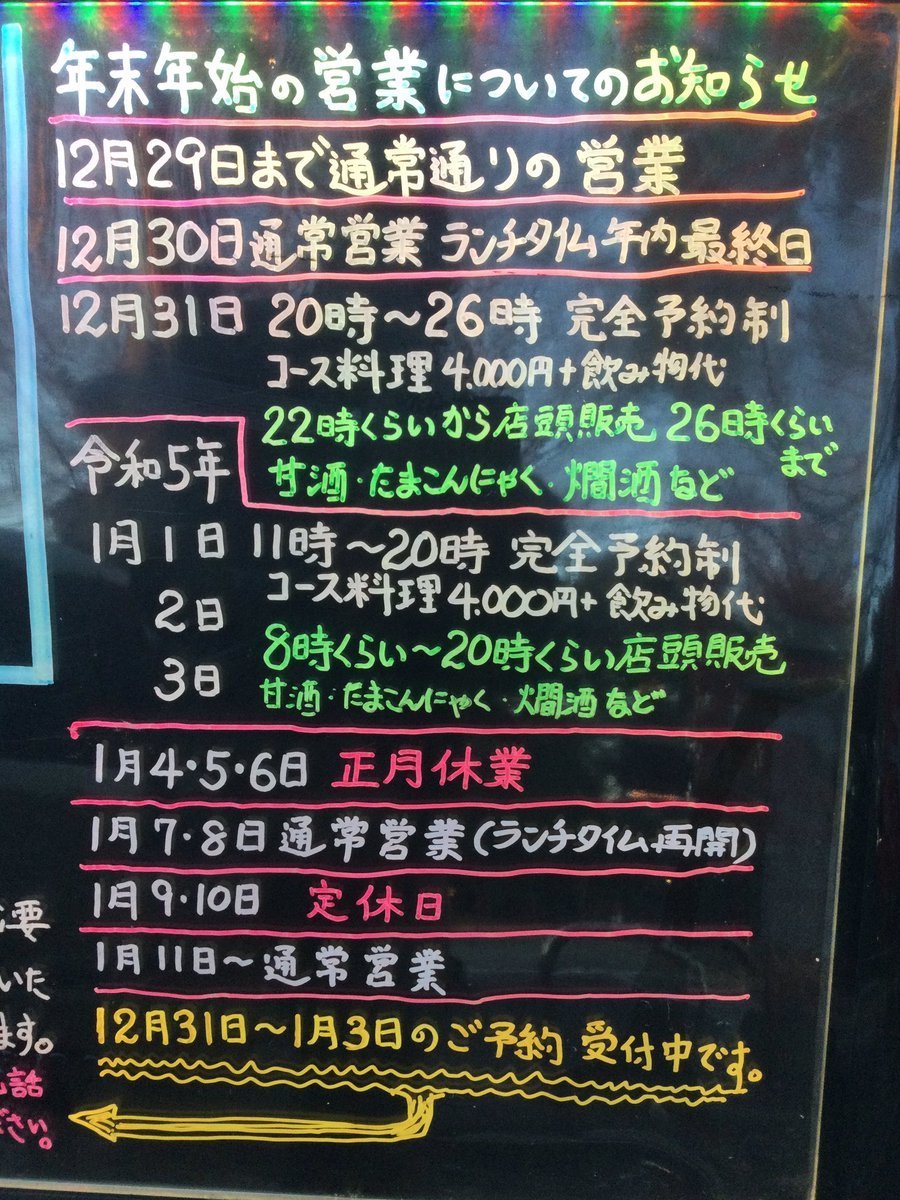 年末年始の営業についてのお知らせ
12月29日まで通常通りの営業
12月30日通常営業 ランチタイム年内最終日
12月31日 20時〜26時 完全予約制
コース料理4.000円+飲み物代
22時くらいから店頭販売 26時くらい
まで
甘酒・たまこんにゃく・燗酒など
令和5年
1月1日 11時〜20時 完全予約制
コース料理4.000円+飲み物代
2日
8時くらい〜20時くらい店頭販売
3日
甘酒・たまこんにゃく・燗酒など
1月4・5・6日 正月休業
1月7・8日通常営業(ランチタイム再開)
1月9・10日 定休日
1月11日〜通常営業
12月31日〜1月3日のご予約 受付中です。
要
いた
ます。
話
ださい。